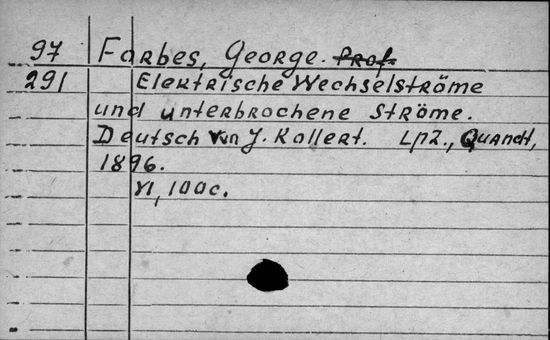 97 Forbes, George. Prof.
291 Elektrische Wechselströme
und unterbrochene Ströme.
Deutsch von J. Kollert. Lpz., Quandt,
1896.
VI, 100c.